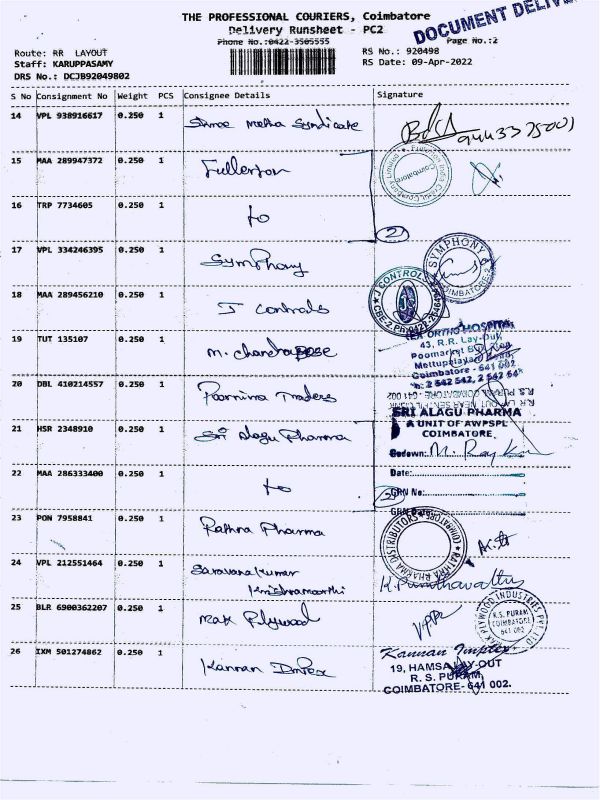 THE PROFESSIONAL COURIERS, Coimbatore
DOCUMENT DELIVE
Delivery Runsheet - PC2
Phone No.:0422-3505555
Page No.:2
Route: RR LAYOUT
RS No.: 920498
Staff: KARUPPASAMY
RS Date: 09-Apr-2022
DRS No.: DCJB92049802
S No Consignment No Weight PCS Consignee Details Signature
14 VPL 938916617 0.250 1 Shree Metha Syndicate
15 MAA 289947372 0.250 1 Fullerton
16 TRP 7734605 0.250 1 to
2
17 VPL 334246395 0.250 1 Symphony
SYMPHONY
COIMBATORE-2
18 MAA 289456210 0.250 1 J Controls
CONTROLS
19 TUT 135107 0.250 1 M. Chandrabose
ORTHO HOSPITAL
43, R.R. Lay-Out,
Coimbatore - 641 002
20 DBL 410214557 0.250 1 Poornima Traders
21 HSR 2348910 0.250 1 Sri Alagu Pharma
SRI ALAGU PHARMA
A UNIT OF AWPSPL
COIMBATORE.
Godown:
22 MAA 286333400 0.250 1 to
Date:
2
GRN No:
GRN Date:
23 PON 7958841 0.250 1 Rathna Pharma
RATHNA PHARMA DISTRIBUTORS
COIMBATORE
24 VPL 212551464 0.250 1 Saravanakumar
Krishnamoorthi
25 BLR 6900362207 0.250 1 Max Plywood
MAX PLYWOOD INDUSTRIES PVT LTD
R.S. PURAM
COIMBATORE
641 002
26 IXM 501274862 0.250 1 Kannan Impex
Kannan Implex
19, HAMSA LAY-OUT
R. S. PURAM,
COIMBATORE- 641 002.